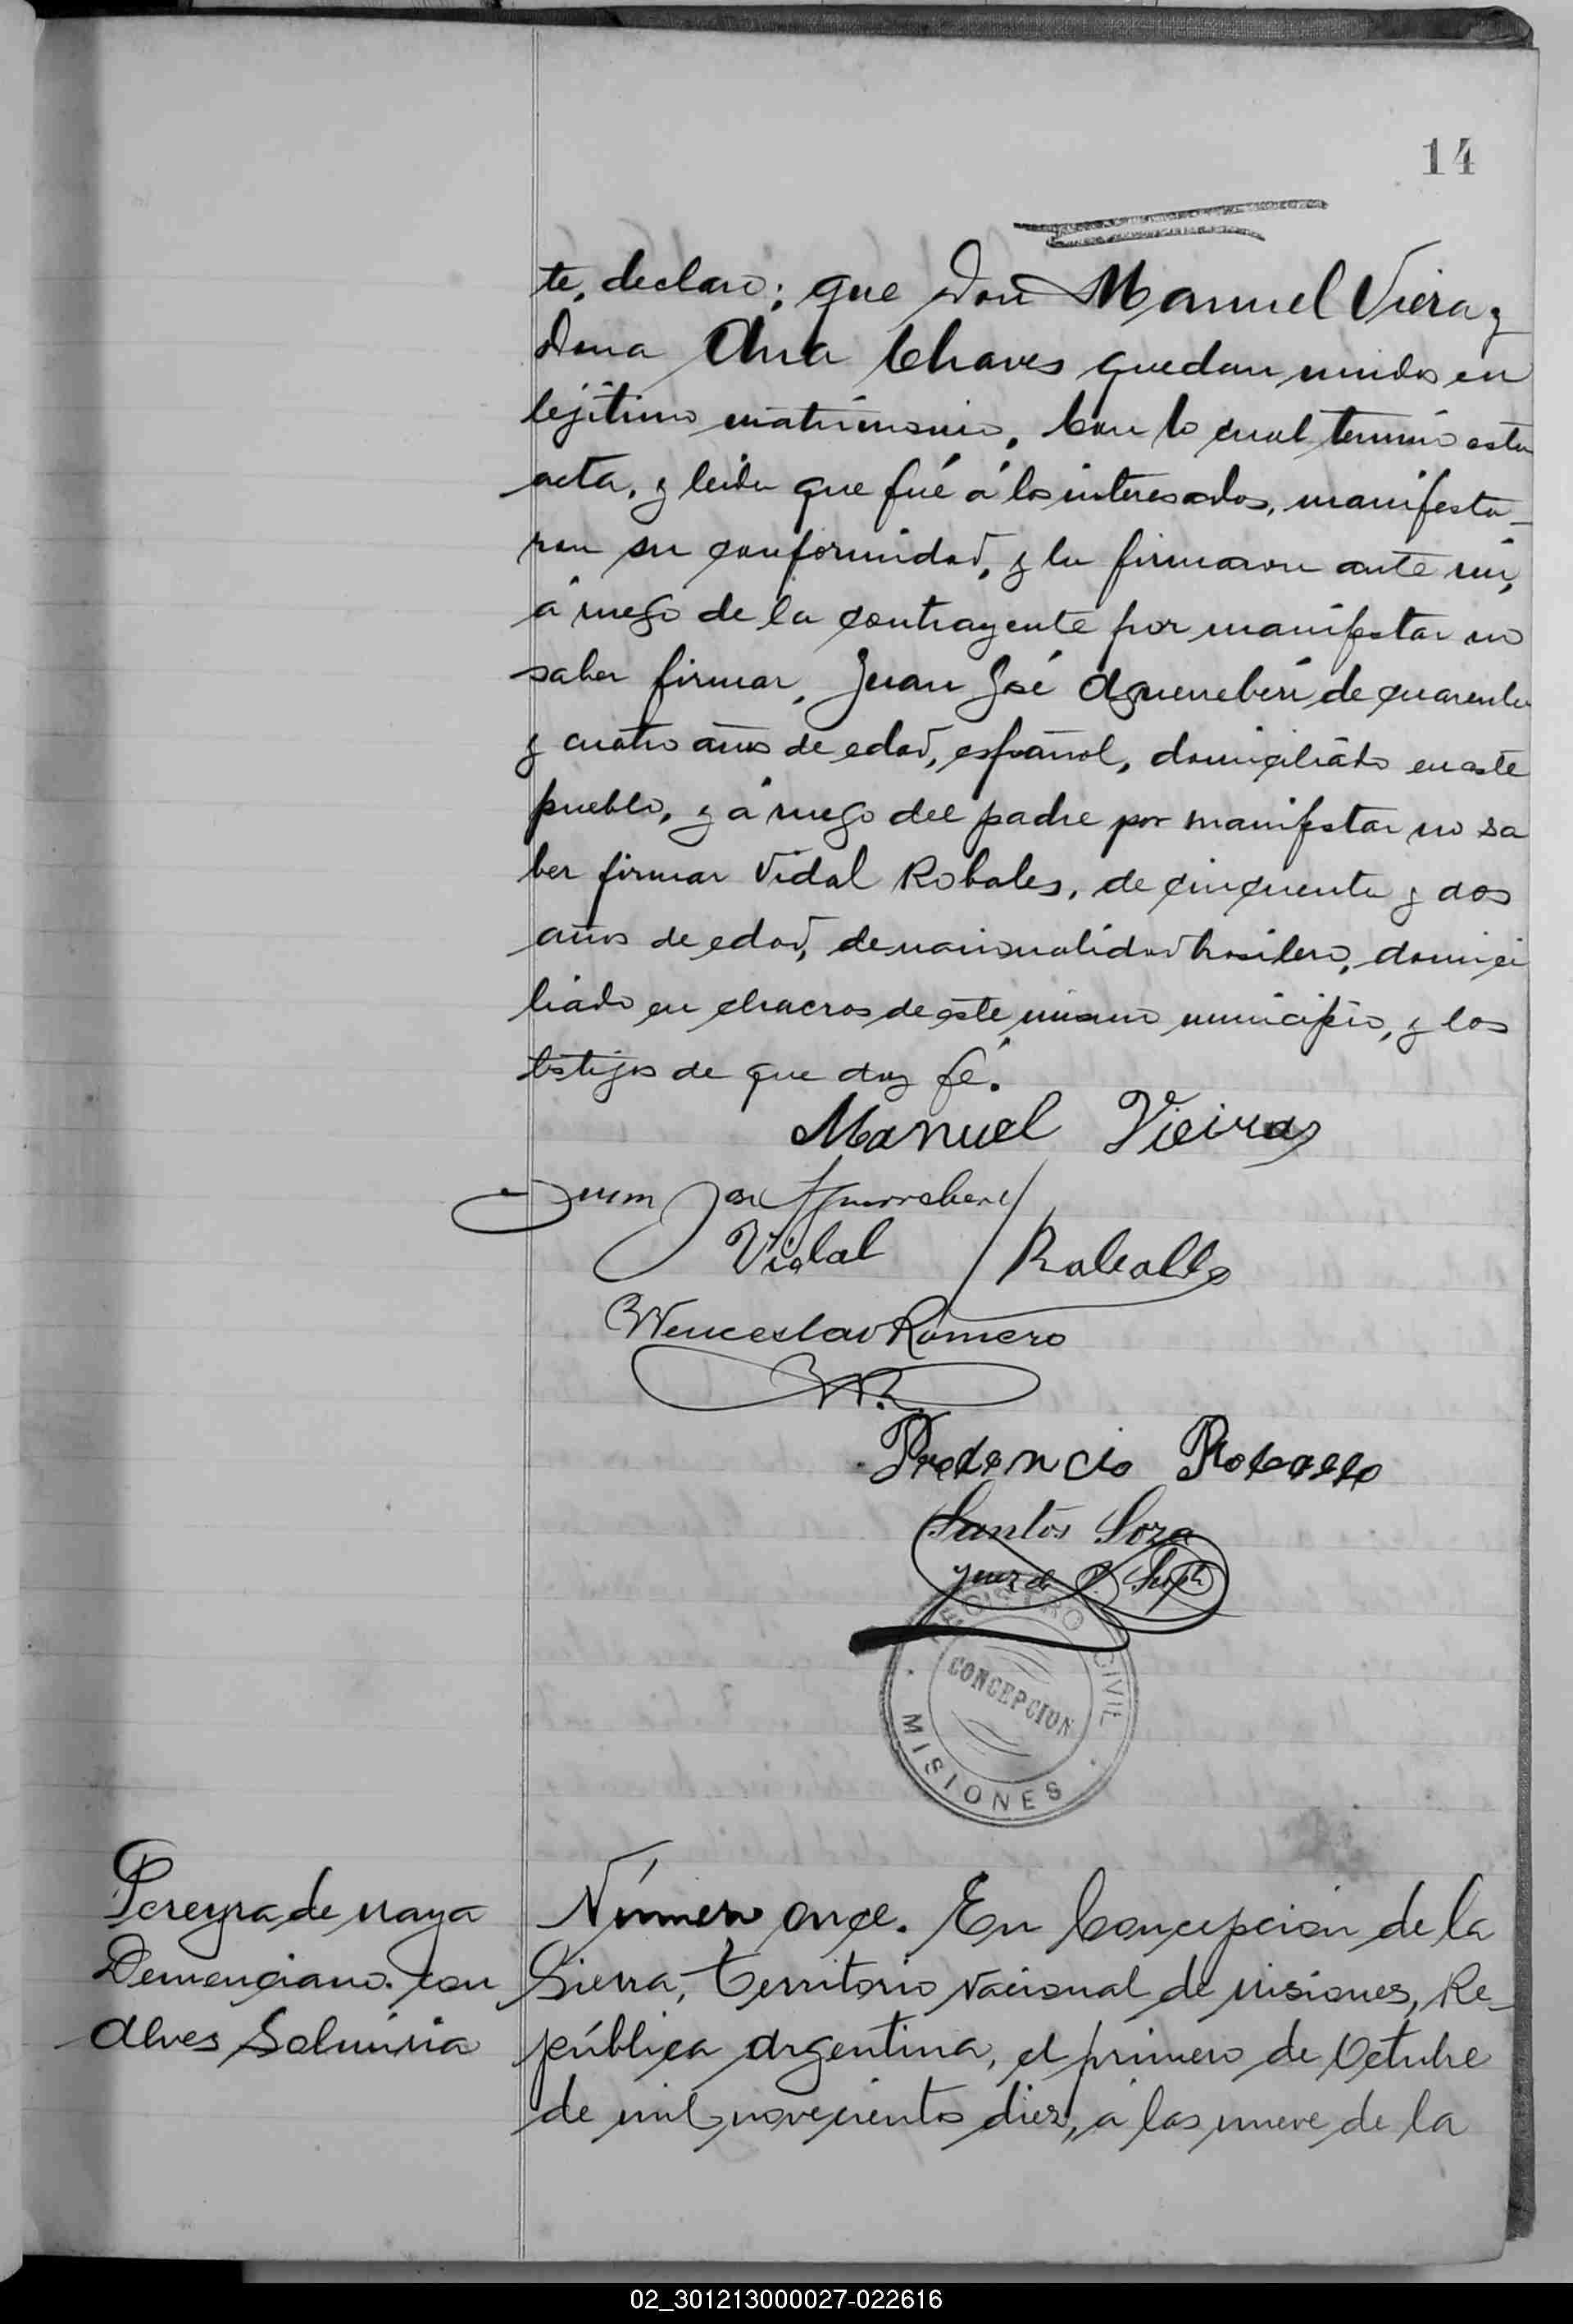 14
te, declaro; que Don Manuel Viera y
Dona Ana Chaves quedan unidos en
lejitimo matrimonio, Con lo cual terminó esta
acta, y leida que fué á los interesados, manifesta-
ron su conformidad, y la firmaron ante mi,
á ruego de la contrayente por manifestar no
saber firmar, Juan José de cuarenta
y cuatro años de edad, español, domiciliado en este
pueblo, y á ruego del padre por manifestar no sa
ber firmar Vidal Robales, de cincuenta y dos
años de edad, de nacionalidad brasilero, domici
liado en chacras de este mismo municipio, y los
testigos de que doy fé.
Manuel Vieira
Juan José
Vidal
Wenceslao Romero
WR.
Prudencio
Santos Soza
Juez de P. Suplte
REGISTRO CIVIL
CONCEPCION
MISIONES
Pereyra de naya
Demenciano. con
Alves
Número once. En Concepcion de la
Sierra, Territorio Nacional de Misiones, Re-
pública Argentina, el primero de Octubre
de mil novecientos diez, á las nueve de la
02_301213000027-022616